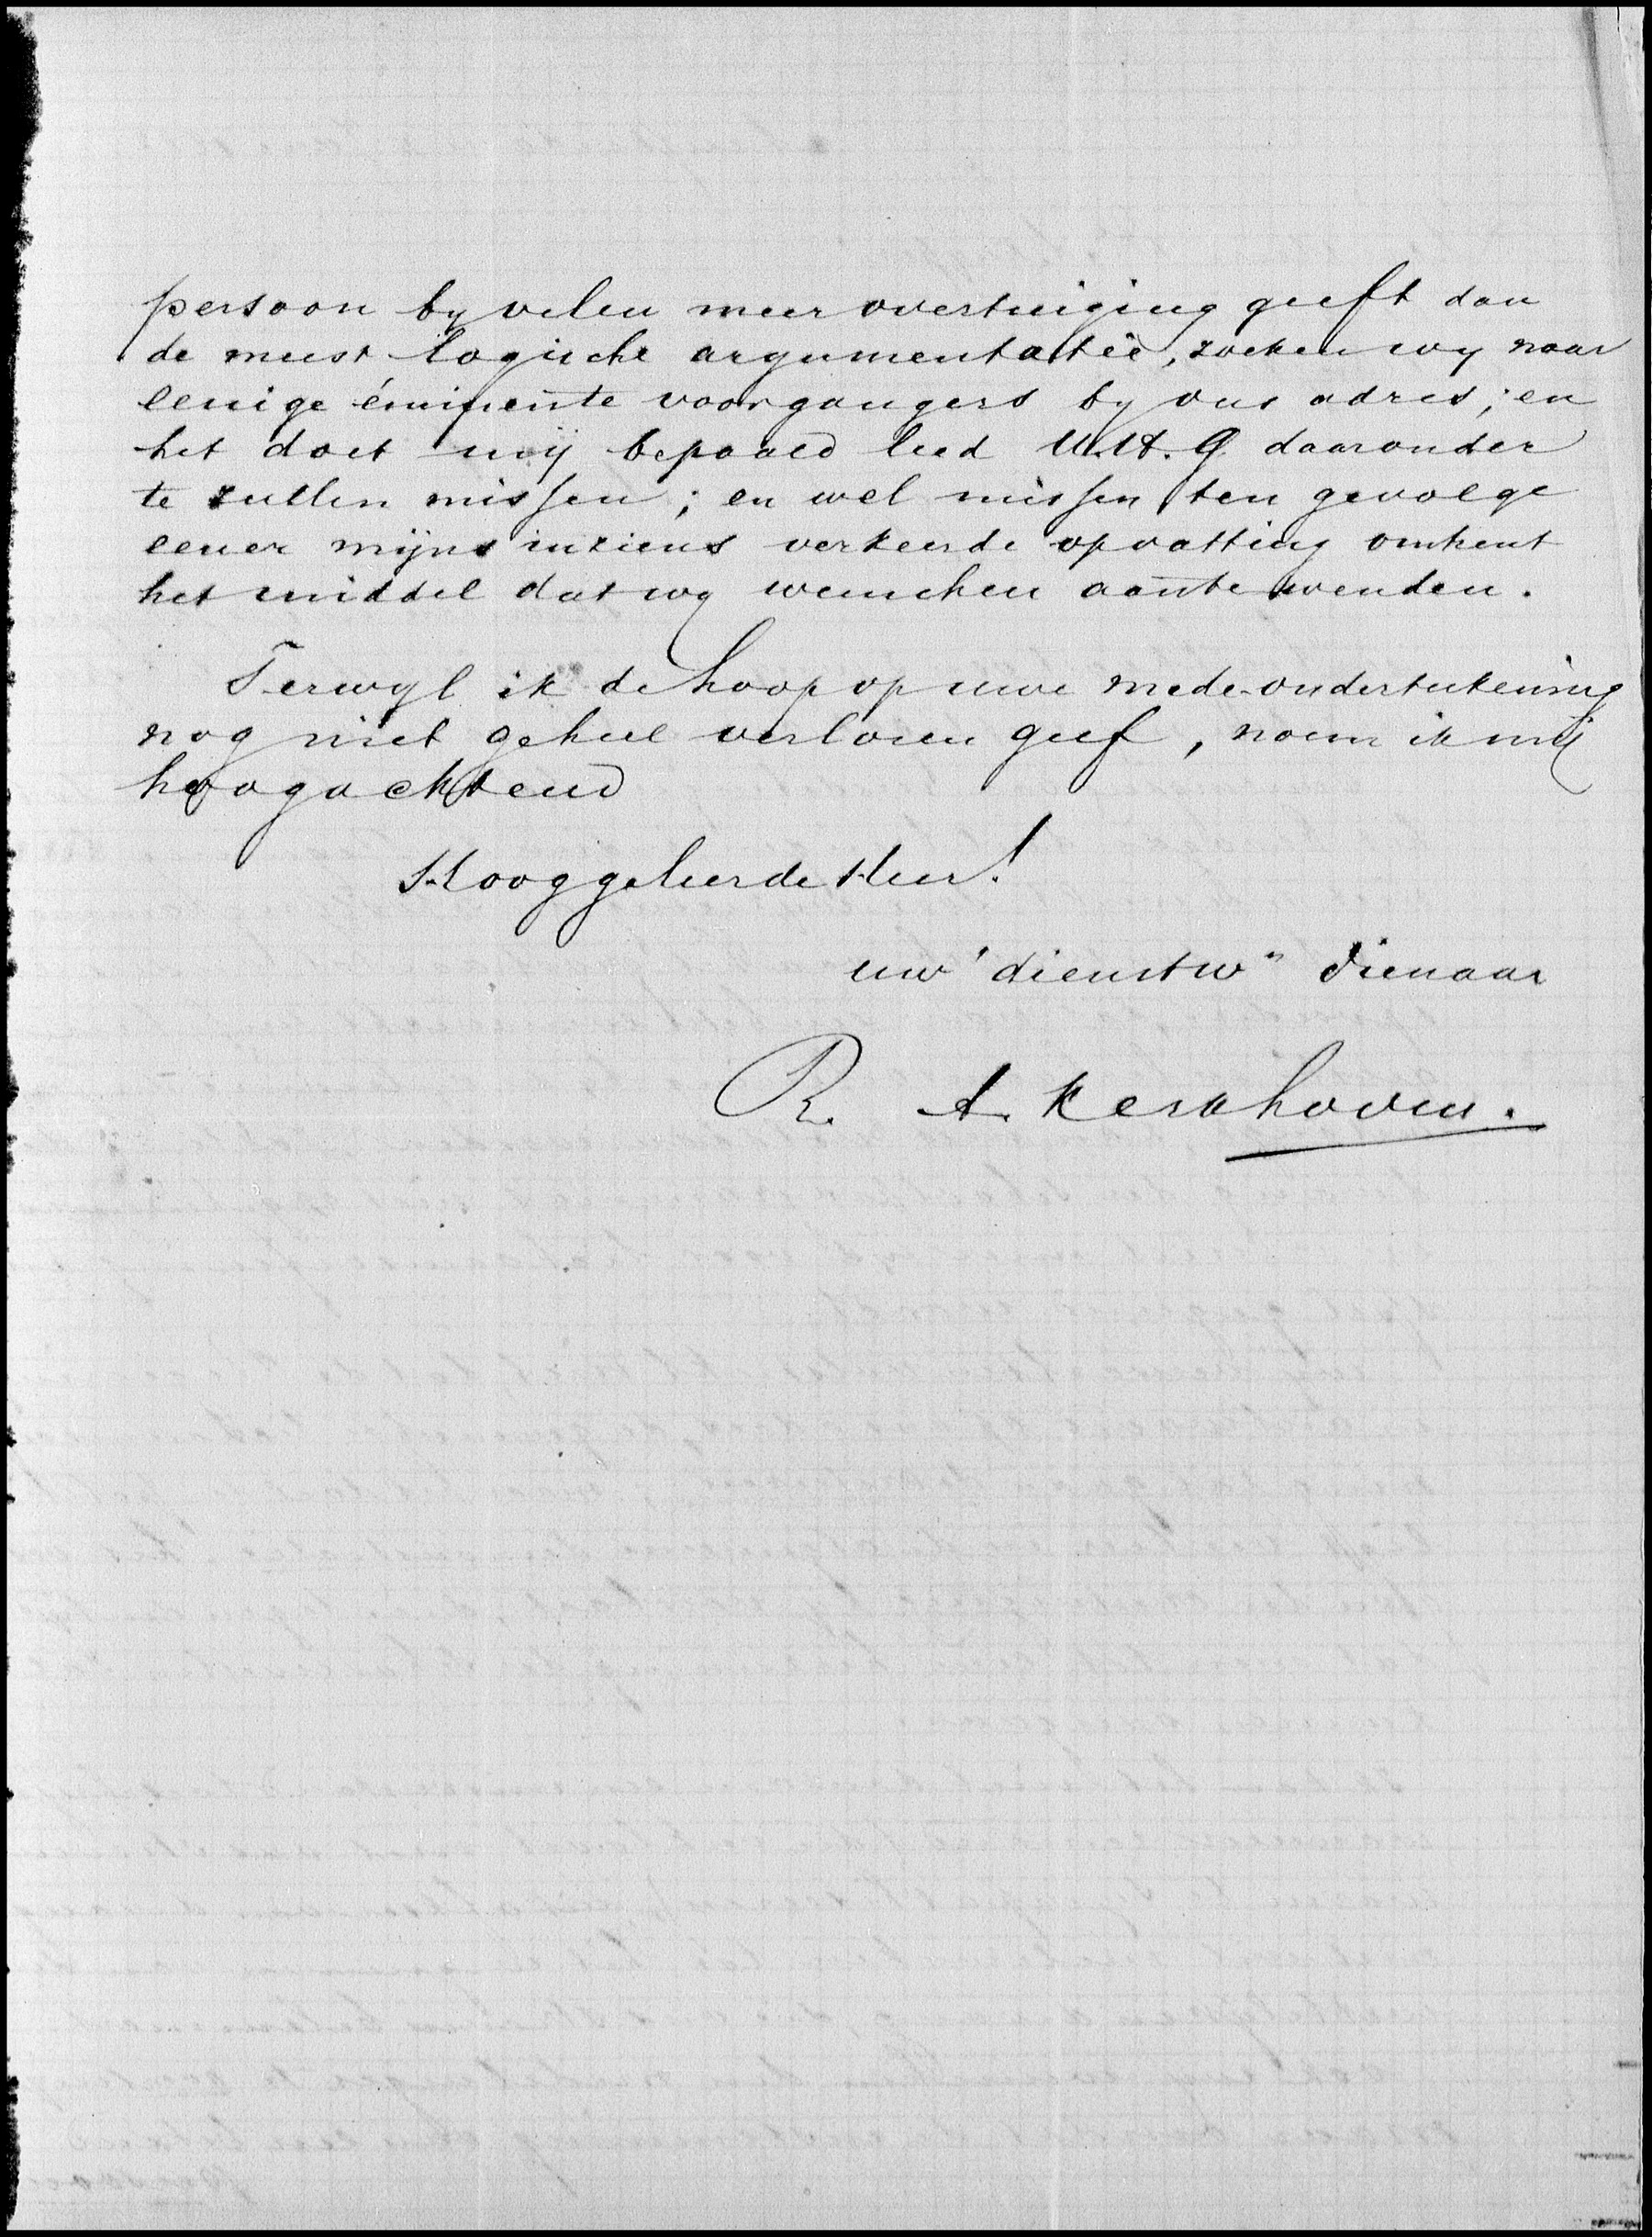 persoon by velen meer overtuiging geeft dan
de meest logische argumentatie, zoeken wy naar
eenige éminente voorgangers by ons adres; en
het doet mij bepaald leed U.H.G. daaronder
te zullen missen; en wel missen ten gevolge
eener mijns inziens verkeerde opvatting omtrent
het middel dat wy wenschen aantewenden.
Terwyl ik de hoop op uwe mede-onderteekening
nog niet geheel verloren geef, noem ik mij
hoogachtend
Hooggeleerde Heer!
uw dienstwn dienaar
R. A. Kerkhoven.